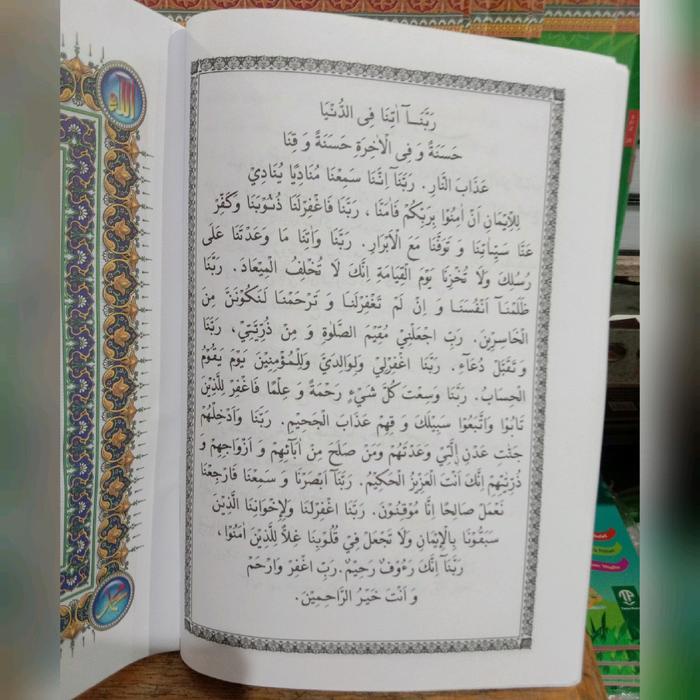 رَبَّنَــآ اٰتِنَا فِى الدُّنْيَا
حَسَنَةً وَ فِى الْاٰخِرَةِ حَسَنَةً وَ قِنَا
عَذَابَ النَّارِ. رَبَّنَآ اِنَّنَا سَمِعْنَا مُنَادِيًا يُنَادِيْ
لِلْاِيْمَانِ اَنْ اٰمِنُوْا بِرَبِّكُمْ فَاٰمَنَّا ، رَبَّنَا فَاغْفِرْلَنَا ذُنُوْبَنَا وَكَفِّرْ
عَنَّا سَيِّاٰتِنَا وَ تَوَفَّنَا مَعَ الْاَبْرَارِ. رَبَّنَا وَاٰتِنَا مَا وَعَدْتَنَا عَلَى
رُسُلِكَ وَلَا تُخْزِنَا يَوْمَ الْقِيَامَةِ اِنَّكَ لَا تُخْلِفُ الْمِيْعَادَ. رَبَّنَا
ظَلَمْنَـآ اَنْفُسَنَـا وَ اِنْ لَمْ تَغْفِرْلَنَـا وَ تَرْحَمْنَـا لَنَكُوْنَنَّ مِنَ
الْخَاسِرِيْنَ. رَبِّ اجْعَلْنِيْ مُقِيْمَ الصَّلٰوةِ وَ مِنْ ذُرِّيَّتِيْ، رَبَّنَا
وَ تَقَبَّلْ دُعَآءِ. رَبَّنَا اغْفِرْلِيْ وَلِوَالِدَيَّ وَلِلْمُؤْمِنِيْنَ يَوْمَ يَقُوْمُ
الْحِسَابُ. رَبَّنَا وَسِعْتَ كُلَّ شَيْءٍ رَحْمَةً وَ عِلْمًا فَاغْفِرْ لِلَّذِيْنَ
تَابُوْا وَاتَّبَعُوْا سَبِيْلَكَ وَ قِهِمْ عَذَابَ الْجَحِيْمِ. رَبَّنَا وَاَدْخِلْهُمْ
جَنّٰتِ عَدْنٍ الَّتِيْ وَعَدْتَهُمْ وَمَنْ صَلَحَ مِنْ اٰبَآئِهِمْ وَ اَزْوَاجِهِمْ وَ
ذُرِّيّٰتِهِمْ اِنَّكَ اَنْتَ الْعَزِيْزُ الْحَكِيْمُ. رَبَّنَآ اَبْصَرْنَا وَ سَمِعْنَا فَارْجِعْنَا
نَعْمَلْ صَالِحًا اِنَّا مُوْقِنُوْنَ. رَبَّنَا اغْفِرْلَنَا وَلِاِخْوَانِنَا الَّذِيْنَ
سَبَقُوْنَا بِالْاِيْمَانِ وَلَا تَجْعَلْ فِيْ قُلُوْبِنَا غِلاًّ لِلَّذِيْنَ اٰمَنُوْا ،
رَبَّنَآ اِنَّكَ رَءُوْفٌ رَحِيْمٌ. رَبِّ اغْفِرْ وَارْحَمْ
وَ اَنْتَ خَيْرُ الرَّاحِمِيْنَ.
الله
محمد